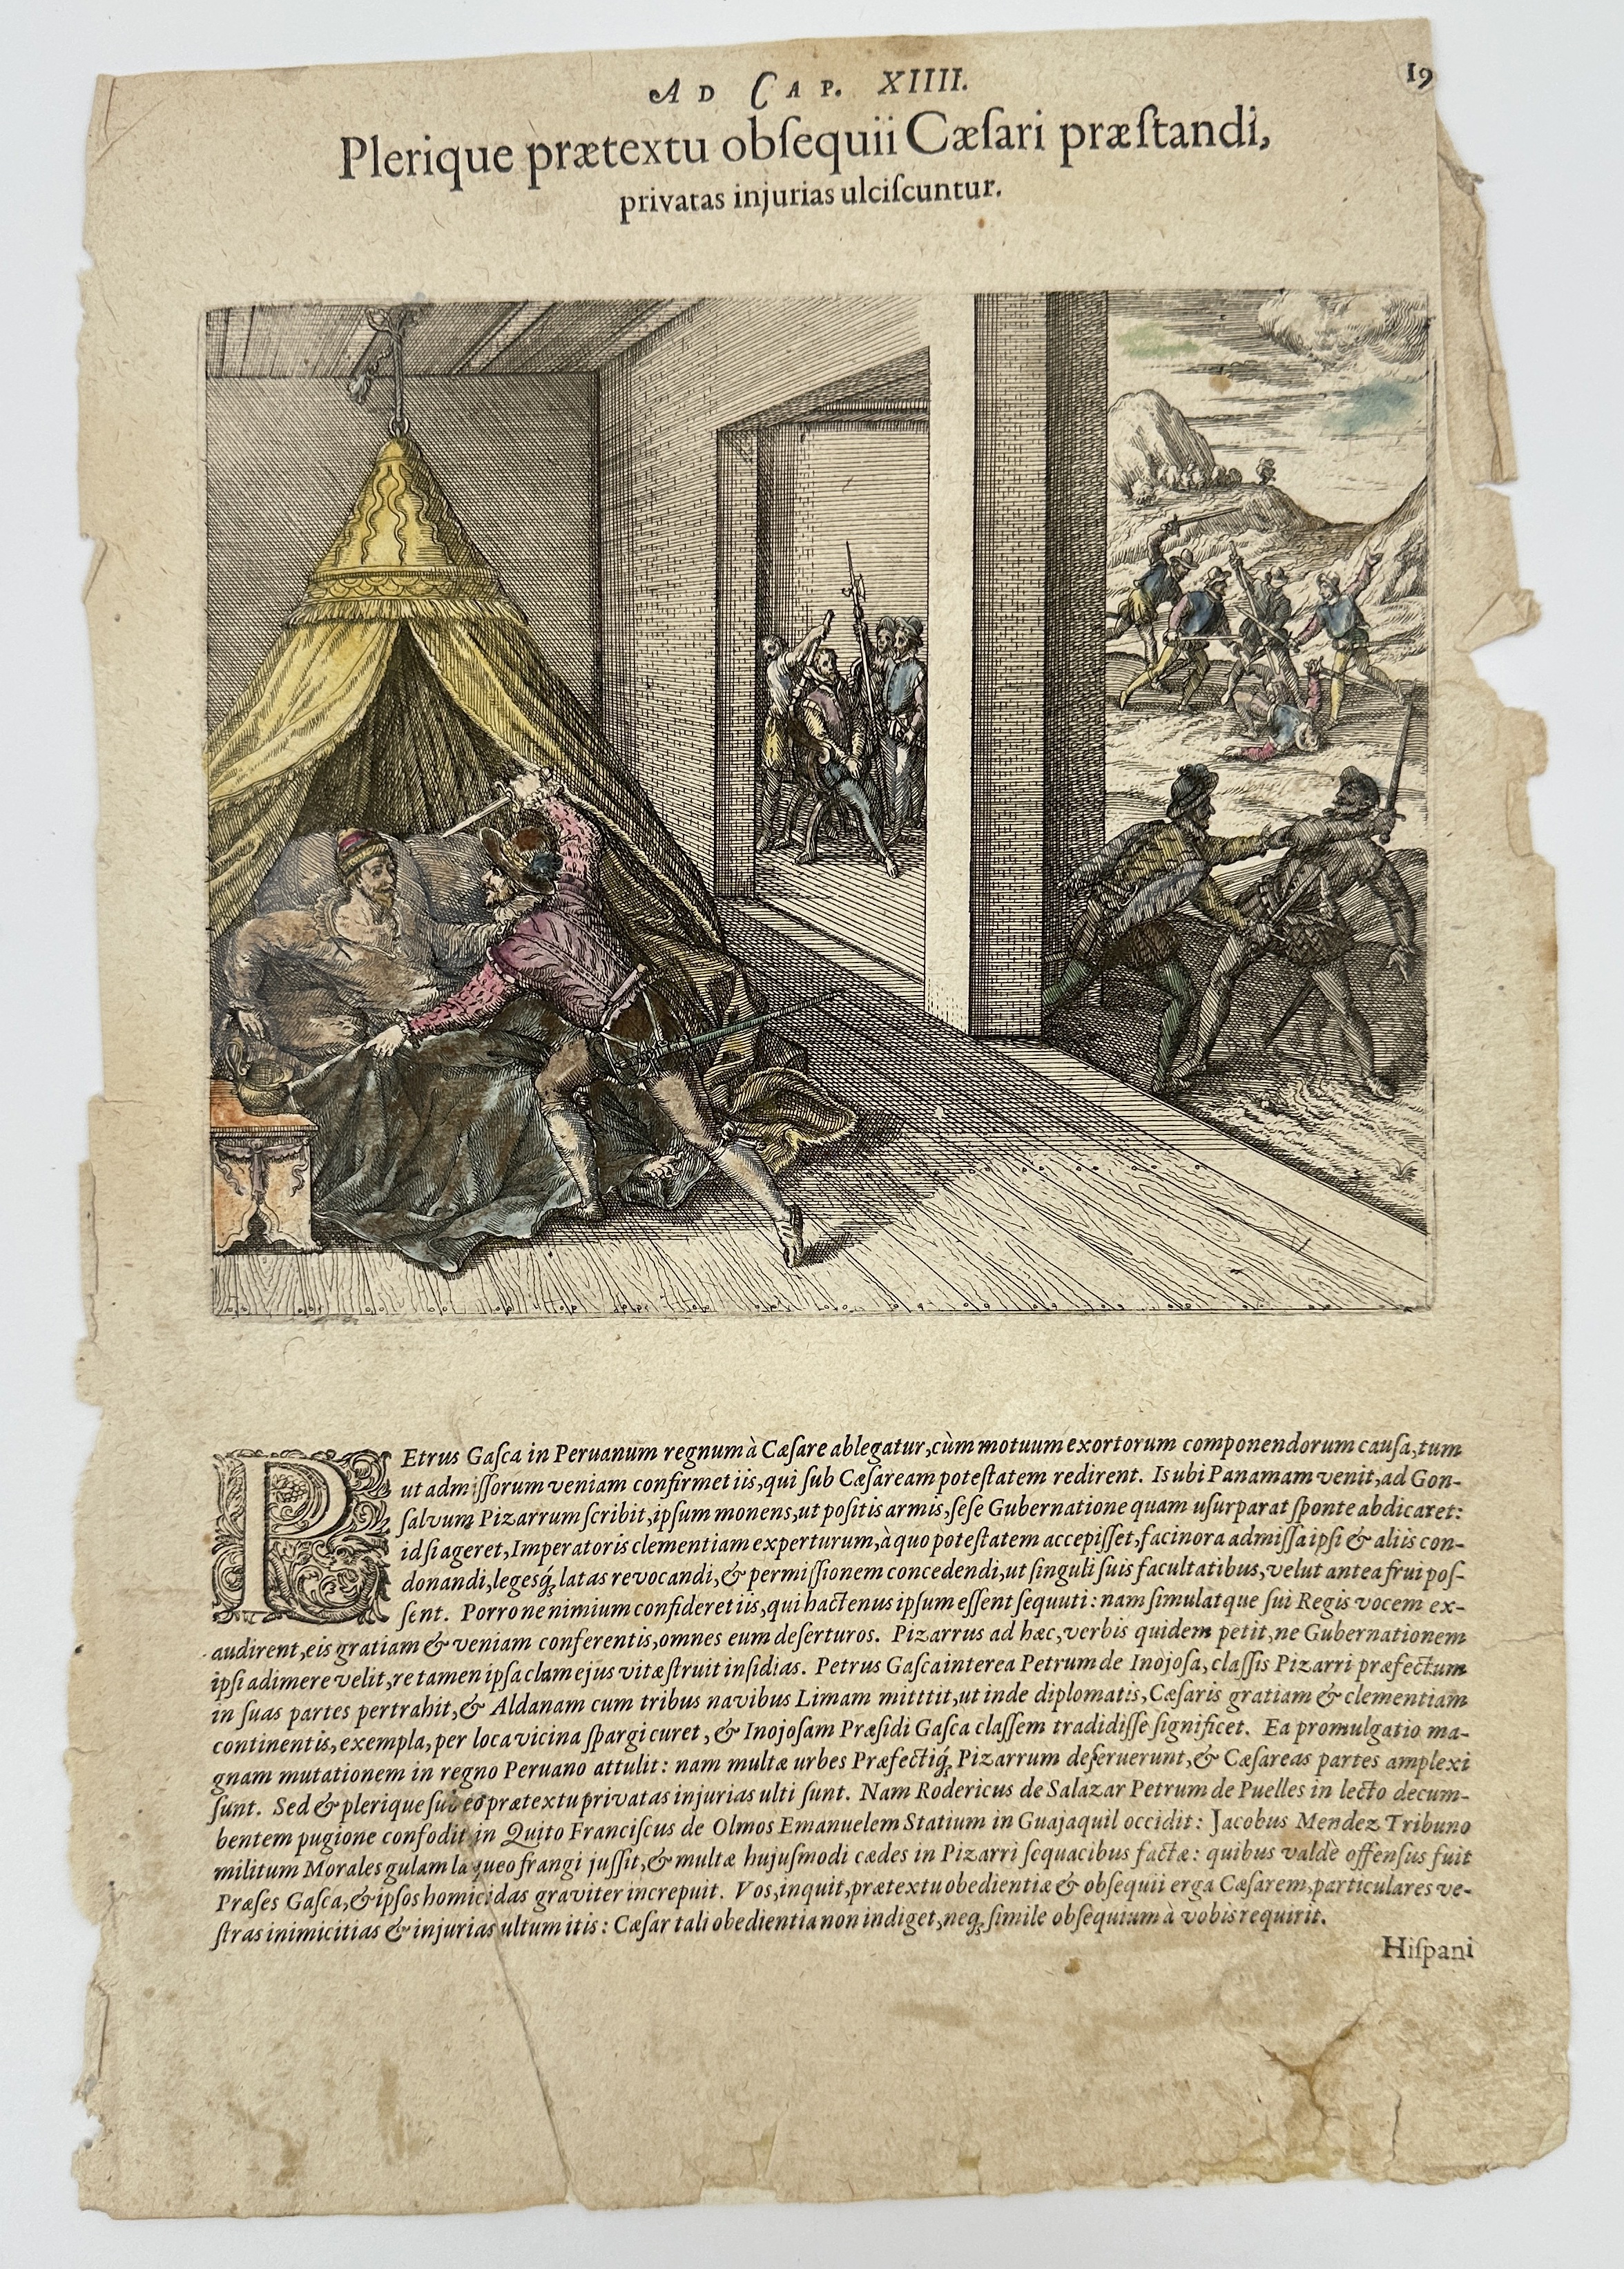 AD CAP. XIIII.
19
Plerique prætextu obſequii Cæſari præſtandi,
privatas injurias ulciſcuntur.
PEtrus Gaſca in Peruanum regnum à Cæſare ablegatur, cùm motuum exortorum componendorum cauſa, tum
ut admiſſorum veniam confirmet iis, qui ſub Cæſaream poteſtatem redirent. Is ubi Panamam venit, ad Gon-
ſalvum Pizarrum ſcribit, ipſum monens, ut poſitis armis, ſeſe Gubernatione quam uſurparat ſponte abdicaret:
id ſi ageret, Imperatoris clementiam experturum, à quo poteſtatem accepiſſet, facinora admiſſa ipſi & aliis con-
donandi, legesq́; latas revocandi, & permiſſionem concedendi, ut ſinguli ſuis facultatibus, velut antea frui poſ-
ſent. Porro ne nimium confideret iis, qui hactenus ipſum eſſent ſequuti: nam ſimulatque ſui Regis vocem ex-
audirent, eis gratiam & veniam conferentis, omnes eum deſerturos. Pizarrus ad hæc, verbis quidem petit, ne Gubernationem
ipſi adimere velit, re tamen ipſa clam ejus vitæ ſtruit inſidias. Petrus Gaſca interea Petrum de Inojoſa, claſſis Pizarri præfectum
in ſuas partes pertrahit, & Aldanam cum tribus navibus Limam mitttit, ut inde diplomatis, Cæſaris gratiam & clementiam
continentis, exempla, per loca vicina ſpargi curet, & Inojoſam Præſidi Gaſca claſſem tradidiſſe ſignificet. Ea promulgatio ma-
gnam mutationem in regno Peruano attulit: nam multæ urbes Præfectiq́; Pizarrum deſeruerunt, & Cæſareas partes amplexi
ſunt. Sed & plerique ſub eo prætextu privatas injurias ulti ſunt. Nam Rodericus de Salazar Petrum de Puelles in lecto decum-
bentem pugione confodit in Quito Franciſcus de Olmos Emanuelem Statium in Guajaquil occidit: Jacobus Mendez Tribuno
militum Morales gulam laqueo frangi juſſit, & multæ hujuſmodi cædes in Pizarri ſequacibus factæ: quibus valdè offenſus fuit
Præſes Gaſca, & ipſos homicidas graviter increpuit. Vos, inquit, prætextu obedientiæ & obſequii erga Cæſarem, particulares ve-
ſtras inimicitias & injurias ultum itis: Cæſar tali obedientia non indiget, neq; ſimile obſequium à vobis requirit.
Hiſpani